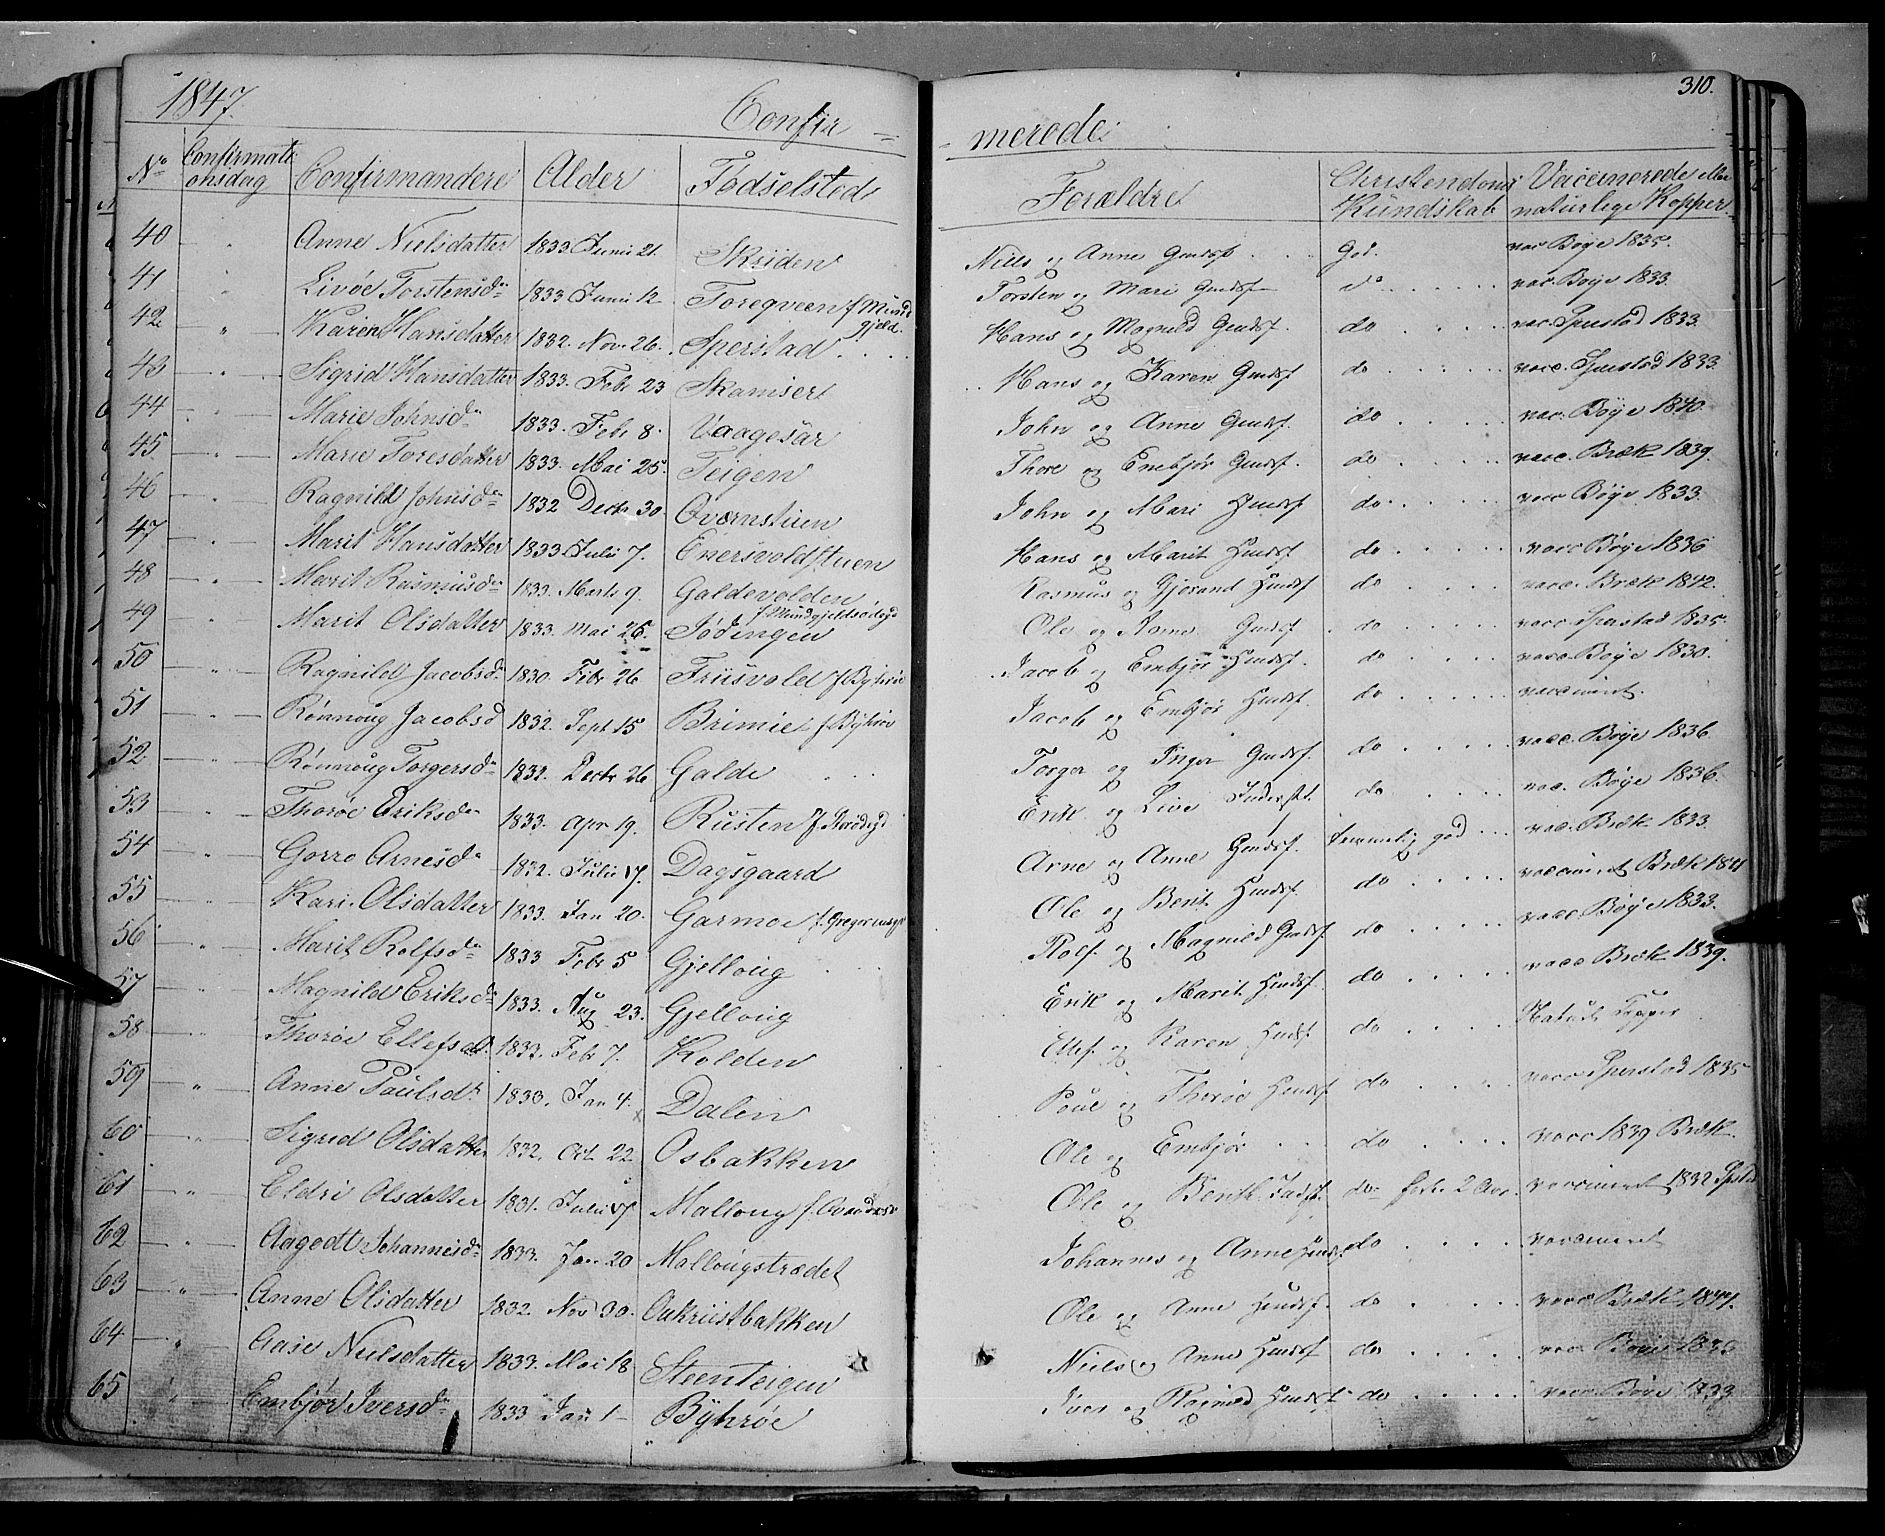 1847. Confir-
310.
-merede
No Confirmati onsdag Confirmandere Alder Fødselsted
Forældre Christendoms Kundskab Vaccinerede eller naturlige Kopper.
40 " Anne Nielsdatter 1833 Junii 21. Skriden Niels og Anne Gmdsf God. vac Bøye 1835.
41 " Livøe Torstensdr 1833 Junii 12 Toregveen f Mundgjeld. Torsten og Mari Gmdsf do vac. Bøye 1833.
42 " Karen Hansdatter 1832. Nov. 26. Sperstad Hans og Magnild Gmdsf. do vac. Sperstad 1833.
43 " Sigrid Hansdatter 1833. Febr 23 Skamser Hans og Karen Gmdsf do vacc. Sperstad 1833.
44 " Marie Johnsdr 1833. Febr 8. Vaagesar John og Anne Gmdsf. do vac. Bøye 1840.
45 " Marie Toresdatter 1833. Mai 25. Teigen Thore og Enebjør Gmdsf. do vacc. Bræk 1839.
46 " Ragnild Johnsdr 1832 Decbr 30 Qværnstuen John og Mari Hmdsf do vacc Bøye 1833.
47 " Marit Hansdatter 1833. Julii 7. Enersvoldstuen Hans og Marit Hmdsf do vacc Bøye 1836
48 " Marit Rasmusdr 1833. Marts 9. Galdevolden Rasmus og Gjørand Hmdsf do vacc. Bræk 1842.
49 " Marit Olsdatter 1833. Mai 26. Jødingen f Mundgjeldsødegd Ole og Anne Gmdsf do vacc Sperstad 1835.
50 " Ragnild Jacobsdr 1830. Febr 26 Friisvold f Byhrøe Jacob og Embjør Hmdsf. do vacc. Bøye 1830.
51 " Rønnoug Jacobsd 1832. Sept 15 Brimie f Byhrøe Jacob og Embjør Hmdsf. do vaccineret.
52 " Rønnoug Torgersdr 1832. Decbr 26 Galde Torger og Inger Gmdsf. do vacc. Bøye 1836
53 " Thorøe Eriksdr 1833. Apr 19. Rusten f Erik og Live Inderst. do vac. Bøye 1836.
54 " Gorro Arnesdr 1832. Julii 17. Dagsgaard Arne og Anne Gmdsf. temmelig god vac. Bræk 1833.
55 " Kari Olsdatter 1833. Jan 20. Garmoe f. Ole og Berit Hmdsf. do vaccineret Bræk 1841
56 " Marit Rolfsdr 1833 Febr 5 Gjelloug Rolf og Magnild Gmdsf. do vacc Bøye 1833.
57 " Magnild Eriksdr 1833. Aug 23. Gjelloug Erik og Marit Hmdsf. do vacc Bræk 1839.
58 " Thorøe Ellefsdr 1833. Febr 7. Kolden Ellef og Karen Hmdsf do Naturl. Kopper
59 " Anne Poulsdr 1833. Jan 4. Dalen Poul og Thorøe Hmdsf do vacc Sperstad 1835
60 " Sigrid Olsdatter 1832. Oct 22 Osbakken Ole og Embjør do vacc 1839 Bræk
61 " Eldri Olsdatter 1831. Julii 17 Malloug f. Ole og Berit do vaccineret 1832
62 " Aagodt Johannesdr 1833. Jan 20 Mallougstrædet Johannes og Anne Hmdsf do vaccineret
63 " Anne Olsdatter 1832. Nov 30. Aakrustbakken Ole og Anne Hmdsf. do vacc Bræk 1841.
64 " Aase Nielsdatter 1833. Mai 18 Steenteigen Niels og Anne Hmdsf do vacc Bøye 1835
65 " Embjør Iversdr 1833 Jan 1 Byhrøe Iver og Ragnild Hmdsf do vacc. Bøye 1833.